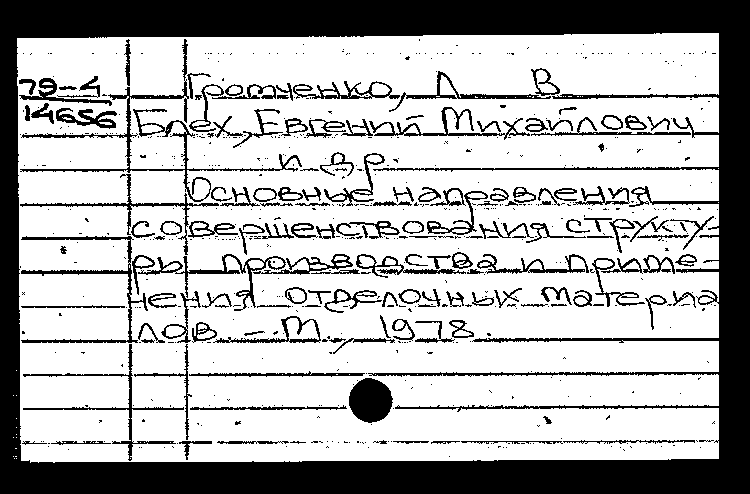 79-4
14656
Громченко, Л В
Блех, Евгений Михайлович
и др.
Основные направления
совершенствования структу-
ры производства и приме-
нения отделочных материа
лов. - М, 1978.